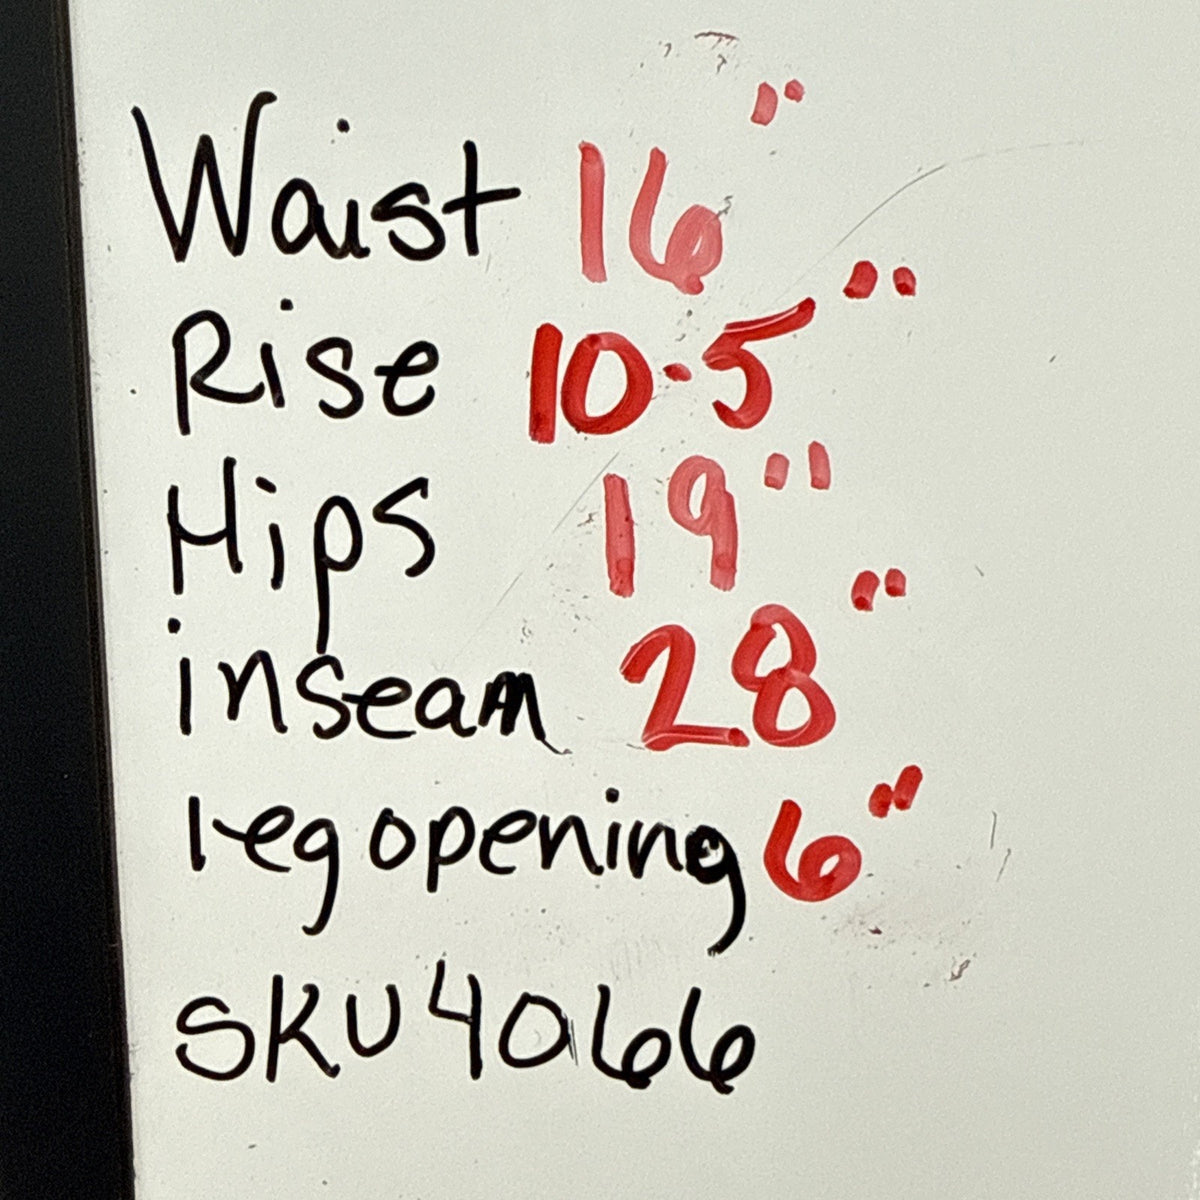 Waist 16"
Rise 10.5"
Hips 19"
inseam 28"
leg opening 6"
SKU 4066